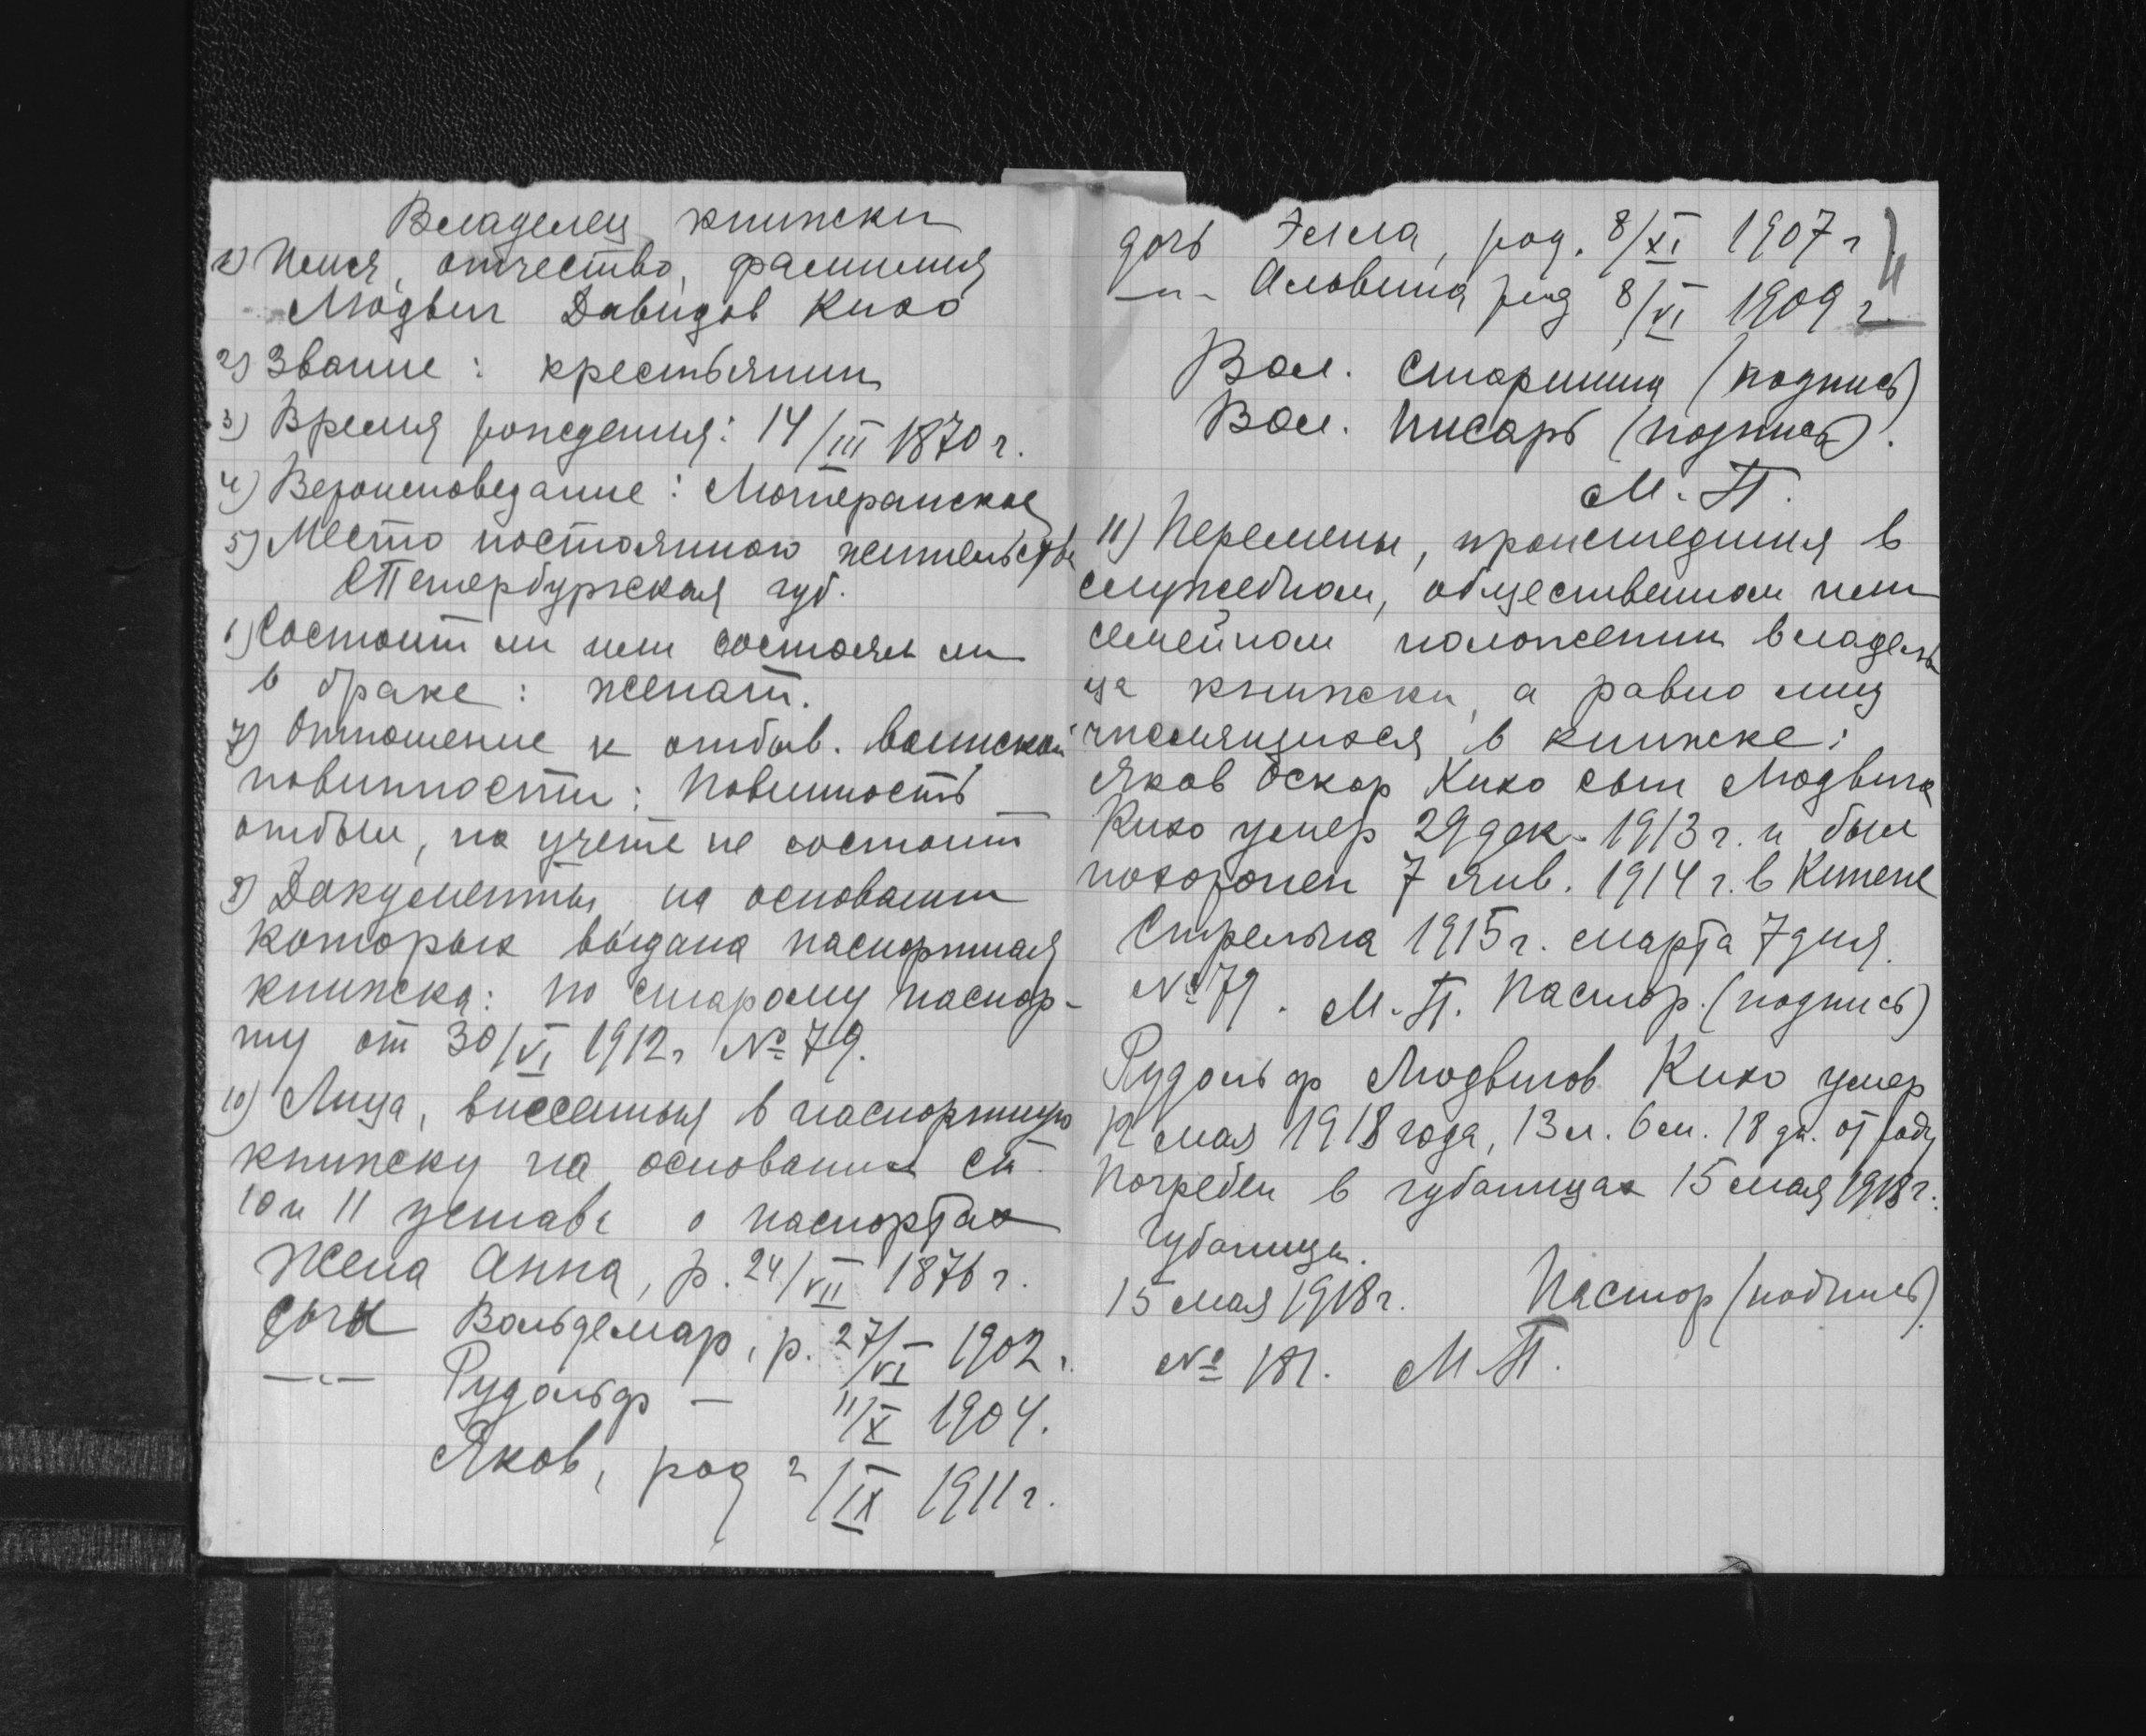 Владелец книжки
1) Имя, отчество, фамилия
Людвиг Давидов Кихо
2) Звание: крестьянин
3) Время рождения: 14/III 1870 г.
4) Вероисповедание: Лютеранское
5) Место постоянного жительства
СПетербургская губ.
6) Состоит ли или состоял ли
в браке: женат.
7) Отношение к отбыв. воинской
повинности: Повинность
отбыл, на учете не состоит
8) Документы на основании
которых выдана паспортная
книжка: по старому паспор-
ту от 30/VI 1912 г № 79.
10) Лица, внесенныя в паспортную
книжку на основании ст.
10 и 11 устава о паспортах
Жена Анна, р. 24/VII 1876 г.
Вольдемар, р. 27/VI 1902 г.
—"— Рудольф — 11/X 1904.
Яков, род 2/IX 1911 г.
дочь Элла, род. 8/XI 1907 г
—"— Альвина род 8/VI 1909 г.
Вол. Старшина (подпись)
Вол. Писарь (подпись).
М. П.
11) Перемены, происшедшия в
служебном, общественном или
семейном положении владель
ца книжки, а равно лиц
числящихся в книжке:
Яков Оскар Кихо сын Людвига
Кихо умер 29 дек. 1913 г. и был
похоронен 7 янв. 1914 г. в Кипене
Стрельна 1915 г. марта 7 дня.
№ 79. М. П. Пастор. (подпись)
Рудольф Людвигов Кихо умер
12 мая 1918 года, 13 л. 6 м. 18 дн. от роду
Погребен в Губаницах 15 мая 1918 г.
Губаницы.
15 мая 1918 г. Пастор (подпись)
№ 181. М. П.